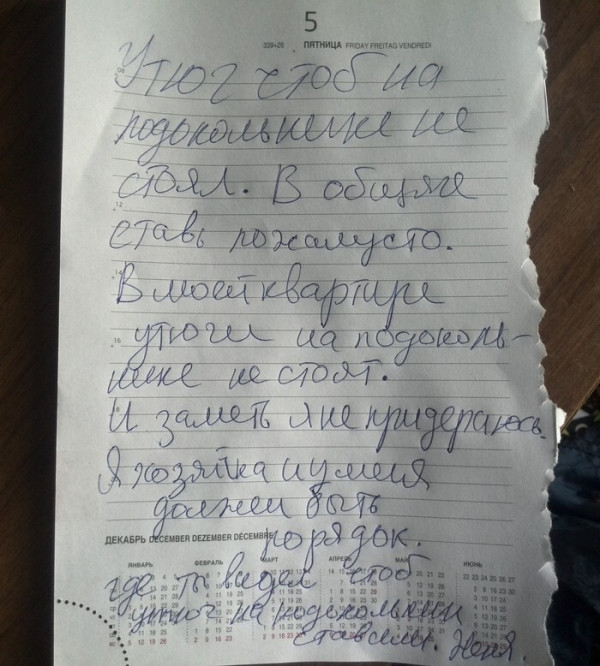 5
339+26 ПЯТНИЦА FRIDAY FREITAG VENDREDI
Утюг чтоб на
подокольнике не
стоял. В общяге
ставь пожалусто.
В моей квартире
утюги на подоколь-
нике не стоят.
И заметь я не придераюсь.
Я хозяйка и у меня
должен быть
порядок.
ДЕКАБРЬ DECEMBER DEZEMBER DÉCEMBRE
ЯНВАРЬ ФЕВРАЛЬ МАРТ АПРЕЛЬ МАЙ ИЮНЬ
где ты видел чтоб
утюг на подокольнии
ставили.